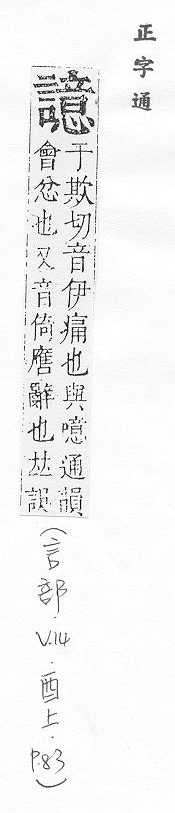 正字通
譩
于欺切音伊痛也與噫通韻
會忿也又音倚譍辭也𠀤誤
(言部.V.14.酉上.P.83)